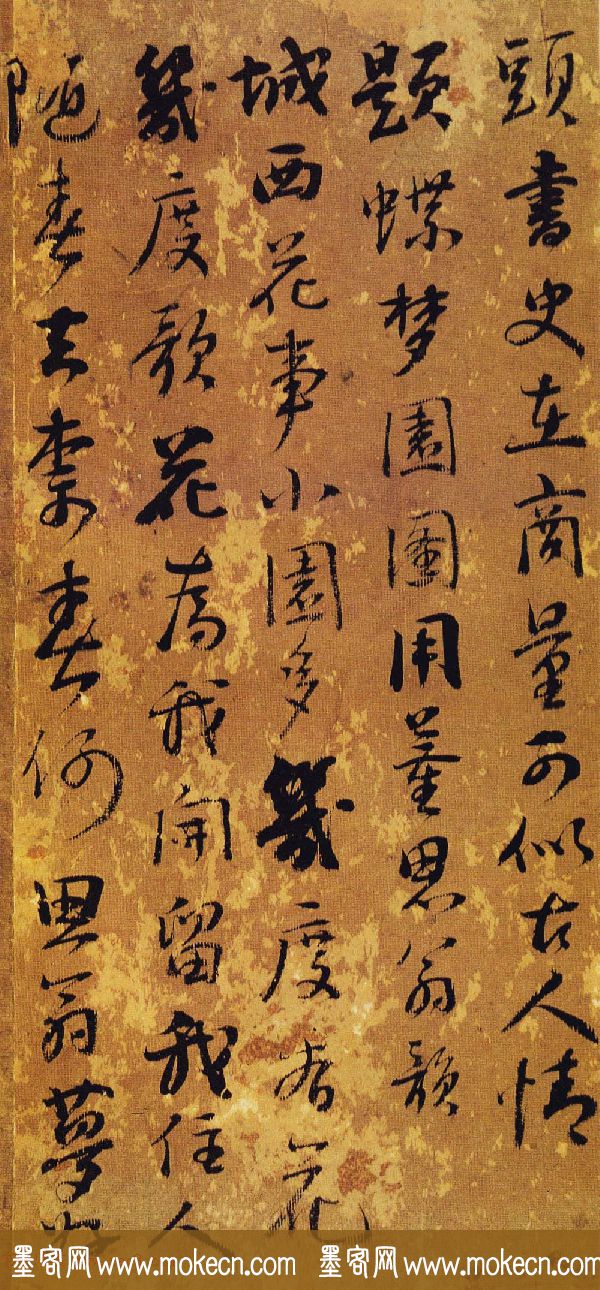 頭書史在商量可似古人情
題蝶梦園圖用董思翁韻
城西花事小園多幾度看花
幾度歌花為我開留我住人
隨春去柰春何思翁夢
墨客网 www.mokecn.com 墨客网 www.mokecn.com